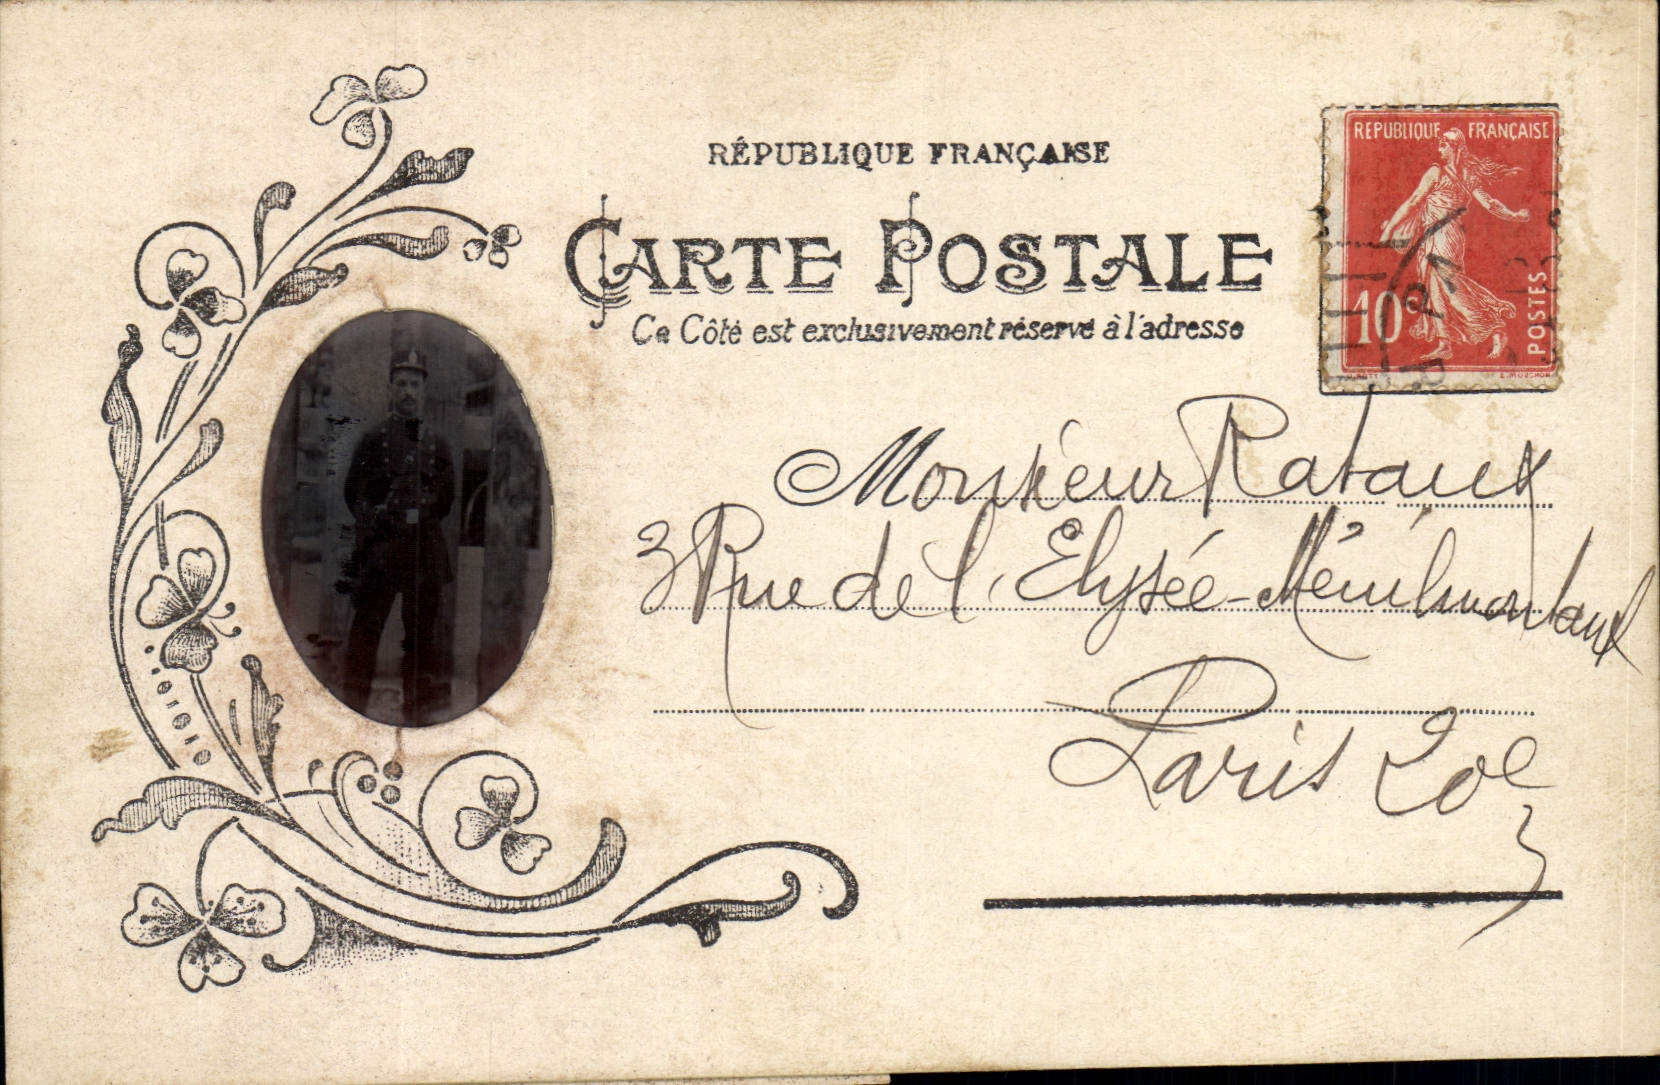 RÉPUBLIQUE FRANÇAISE
CARTE POSTALE
Ce Côté est exclusivement réservé à l'adresse
REPUBLIQUE FRANÇAISE
10c
POSTES
Monsieur Rataux
3 Rue de l'Elysée-Ménilmontant
Paris 20e